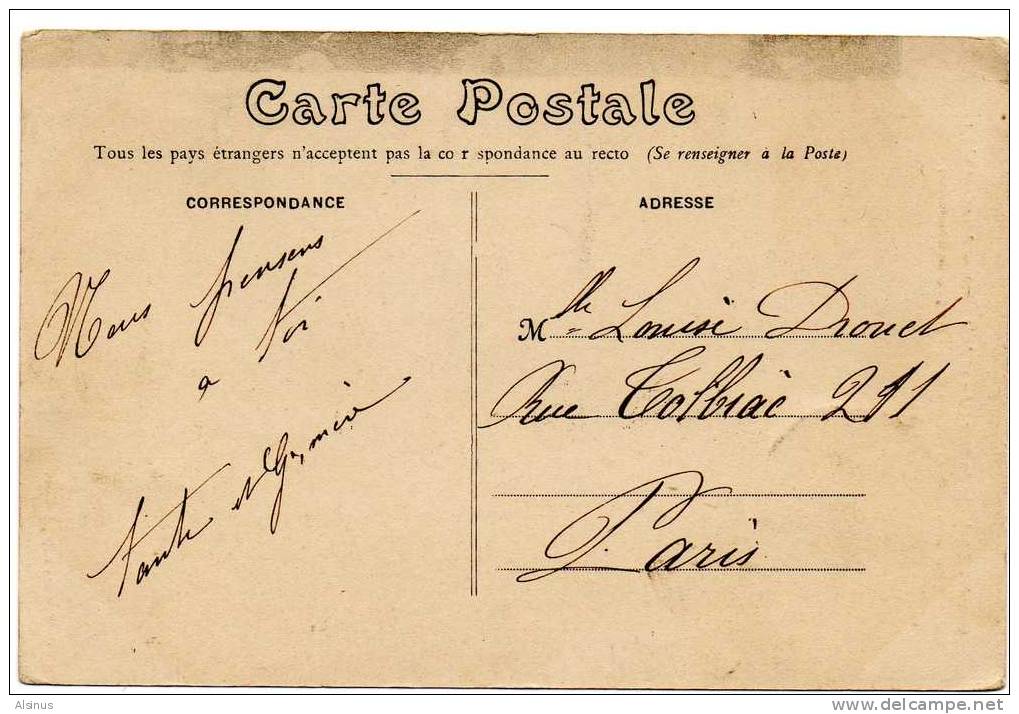 Carte Postale
Tous les pays étrangers n'acceptent pas la co r spondance au recto (Se renseigner à la Poste)
CORRESPONDANCE
Nous pensons
à toi
tante et Gd mère
ADRESSE
Mlle Louise Drouet
Rue Tolbiac 211
Paris
Alsinus
delcampe.net